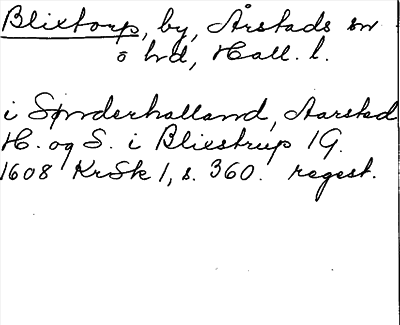 Blixtorp, by, Årstads sn
o hd, Hall. l.
i Sønderhalland, Aarsted
H. og S. i Bliestrup 1 G.
1608 KrSk 1, s. 360. regest.